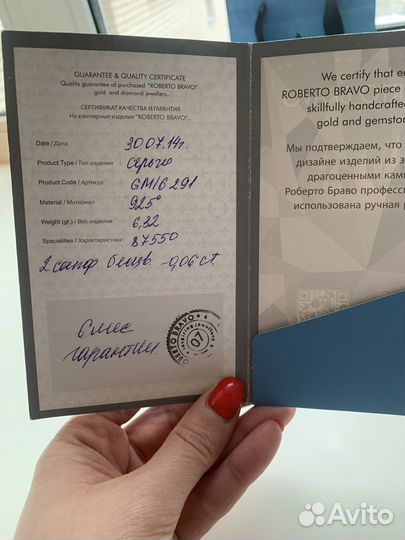 GUARANTEE & QUALITY CERTIFICATE
Quality guarantee of purchased "ROBERTO BRAVO"
gold and diamond jewellery..
СЕРТИФИКАТ КАЧЕСТВА И ГАРАНТИЯ
На ювелирные изделия "ROBERTO BRAVO".
Date / Дата : 30.07.14г.
Product Type / Тип изделия : серьги
Product Code / Артикул : GM/6291
Material / Материал : 925°
Weight (gr.) / Вес изделия : 6,32
Specialities / Характеристика : 87550
2 сапф. бесцв. -0,06 ct.
6 мес
гарантии
ROBERTO BRAVO
07
We certify that ea
ROBERTO BRAVO piece
skillfully handcrafted
gold and gemston
Мы подтверждаем, что
дизайне изделий из з
драгоценными кам
Роберто Браво профес
использована ручная р
Avito